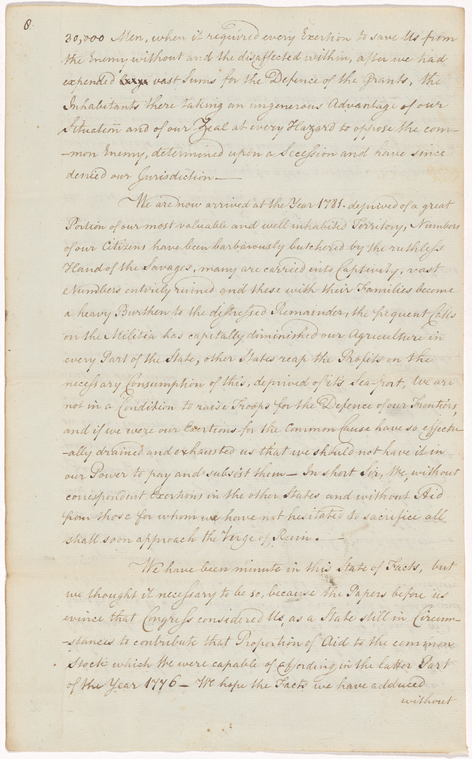 8.
30,000 Men, when it required every Exertion to save Us from
the Enemy without and the disaffected within, after we had
expended vast Sums for the Defence of the Grants, the
Inhabitants there taking an ungenerous Advantage of our
Situation and of our Zeal at every Hazard to oppose the com-
-mon Enemy, determined upon a Secession and have since
denied our Jurisdiction —
We are now arrived at the Year 1781. deprived of a great
Portion of our most valuable and well inhabited Territory, Numbers
of our Citizens have been barbarously butchered by the ruthless
Hand of the Savages, many are carried into Captivity, vast
Numbers entirely ruined and these with their Families become
a heavy Burthen to the distressed Remainder, the frequent Calls
on the Militia has capitally diminished our Agriculture in
every Part of the State, other States reap the Profits on the
necessary Consumption of this, deprived of its Sea-port, We are
not in a Condition to raise Troops for the Defence of our Frontiers,
and if we were our Exertions for the Common Cause have so effectu-
-ally drained and exhausted us that we should not have it in
our Power to pay and subsist them — In short Sir, We, without
correspondent Exertions in the other States and without Aid
from those for whom we have not hesitated to sacrifice all
shall soon approach the Verge of Ruin. —
We have been minute in this State of Facts, but
we thought it necessary to be so, because the Papers before us
evince that Congress considered Us, as a State still in Circum-
-stances to contribute that Proportion of Aid to the common
Stock which We were capable of affording in the latter Part
of the Year 1776 — We hope the Facts we have adduced
without